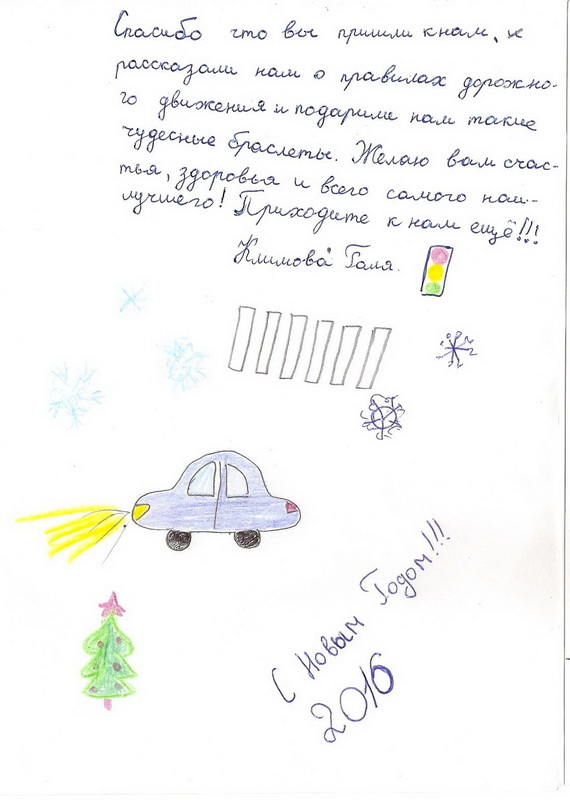 Спасибо что вы пришли к нам, и
рассказали нам о правилах дорожно-
го движения и подарили нам такие
чудесные браслеты. Желаю вам счас-
тья, здоровья и всего самого наи-
лучшего! Приходите к нам ещё!!!
Климова Галя.
С Новым Годом!!!
2016